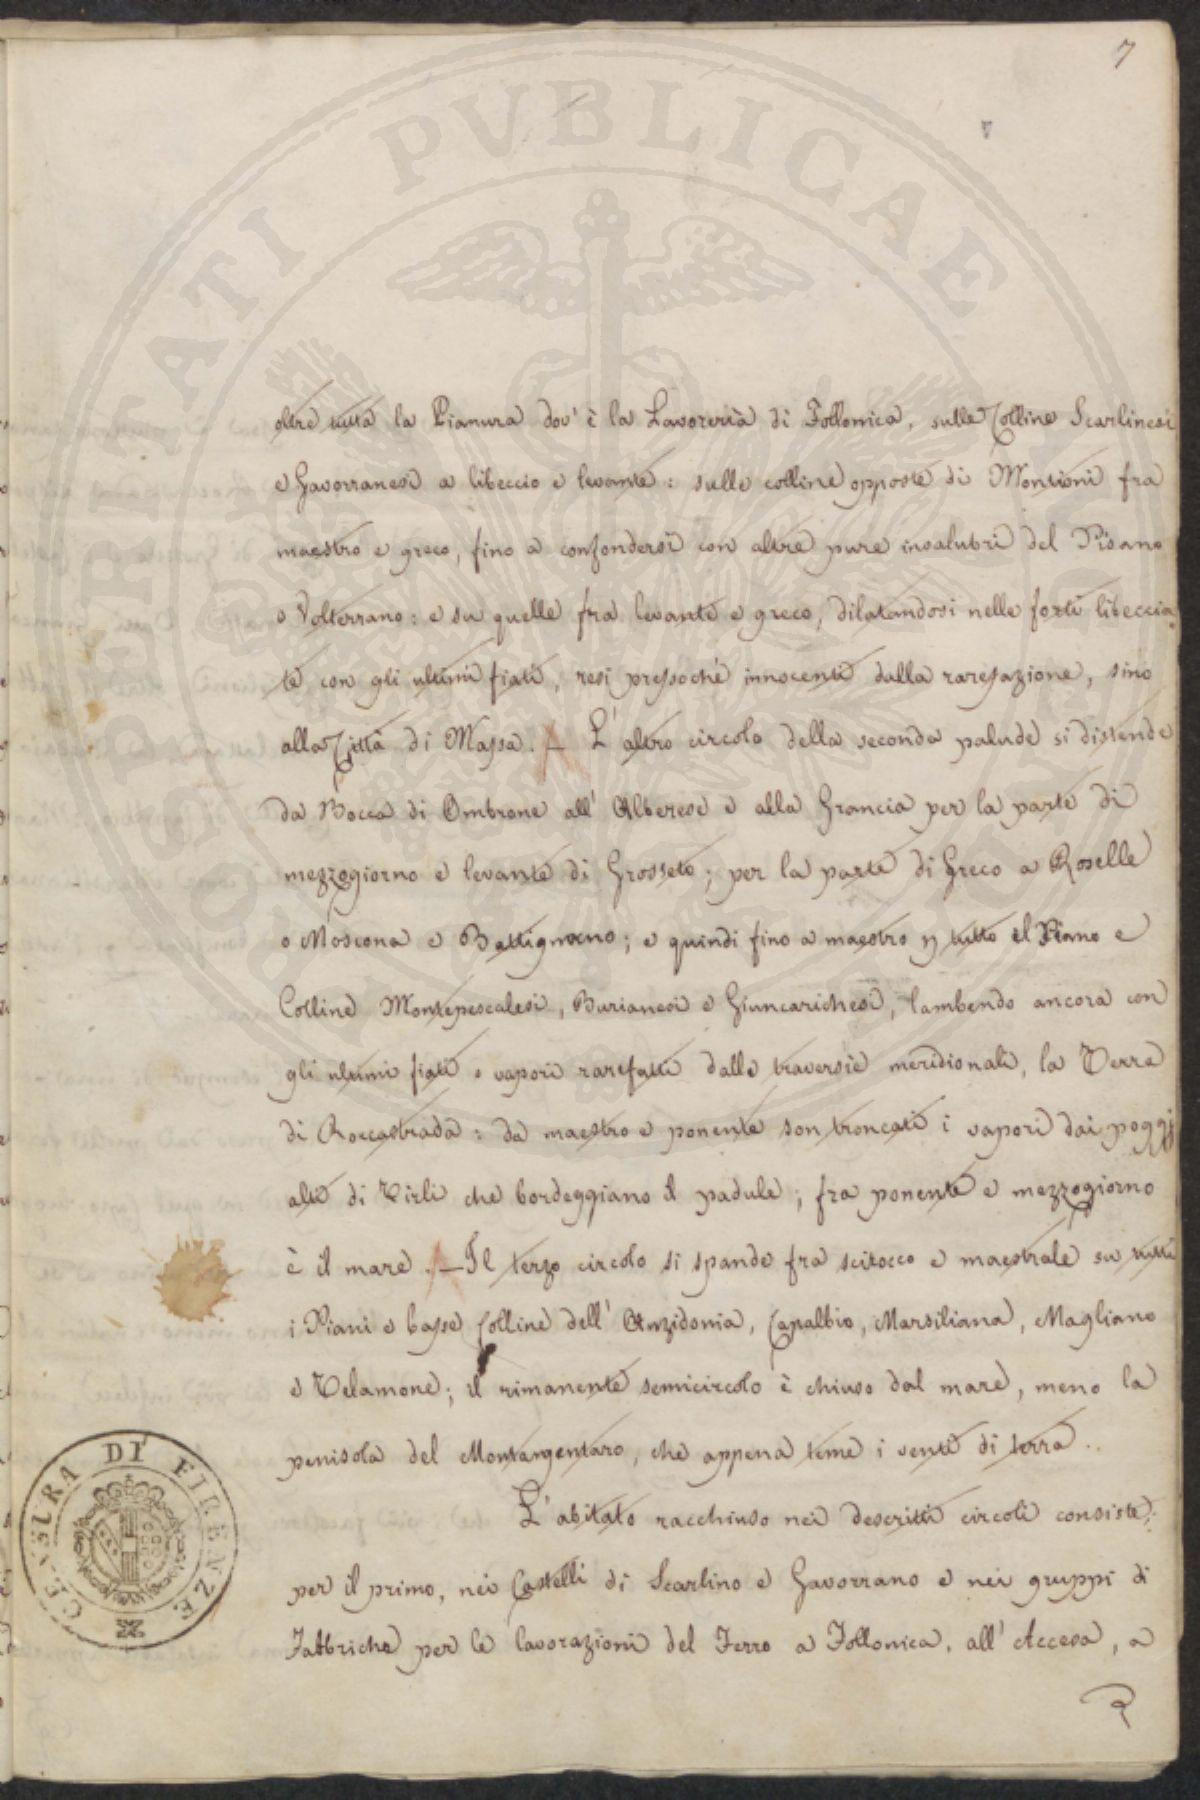 7
V
oltre tutta la Pianura dov' è la Lavoreria di Follonica, sulle Colline Scarlinesi
e Gavorranesi a libeccio e levante: sulle colline opposte di Montioni fra
maestro e greco, fino a confondersi con altre pure insalubri del Pisano
o Volterrano: e su quelle fra levante e greco, dilatandosi nelle forti libeccia-
te con gli ultimi fiati, resi pressochè innocenti dalla rarefazione, sino
alla Città di Massa. — L' altro circolo della seconda palude si distende
da Bocca di Ombrone all' Alberese e alla Grancia per la parte di
mezzogiorno e levante di Grosseto; per la parte di Greco a Roselle
o Moscona e Battignano; e quindi fino a maestro p tutto il Piano e
Colline Montepescalesi, Burianesi e Giuncarichesi, lambendo ancora con
gli ultimi fiati o vapori rarefatti dalle traversie meridionali, la Terra
di Roccastrada: da maestro e ponente son troncati i vapori dai poggj
alti di Tirli che bordeggiano il padule; fra ponente e mezzogiorno
è il mare. — Il terzo circolo si spande fra scirocco e maestrale su tutti
i Piani e basse Colline dell' Anzidonia, Capalbio, Marsiliana, Magliano
e Telamone; il rimanente semicircolo è chiuso dal mare, meno la
penisola del Montargentaro, che appena teme i venti di terra.
L' abitato racchiuso nei descritti circoli consiste;
per il primo, nei Castelli di Scarlino e Gavorrano e nei gruppi di
Fabbriche per le lavorazioni del Ferro a Follonica, all' Accesa, a
CENSURA DI FIRENZE
PROSPERITATI PUBLICAE